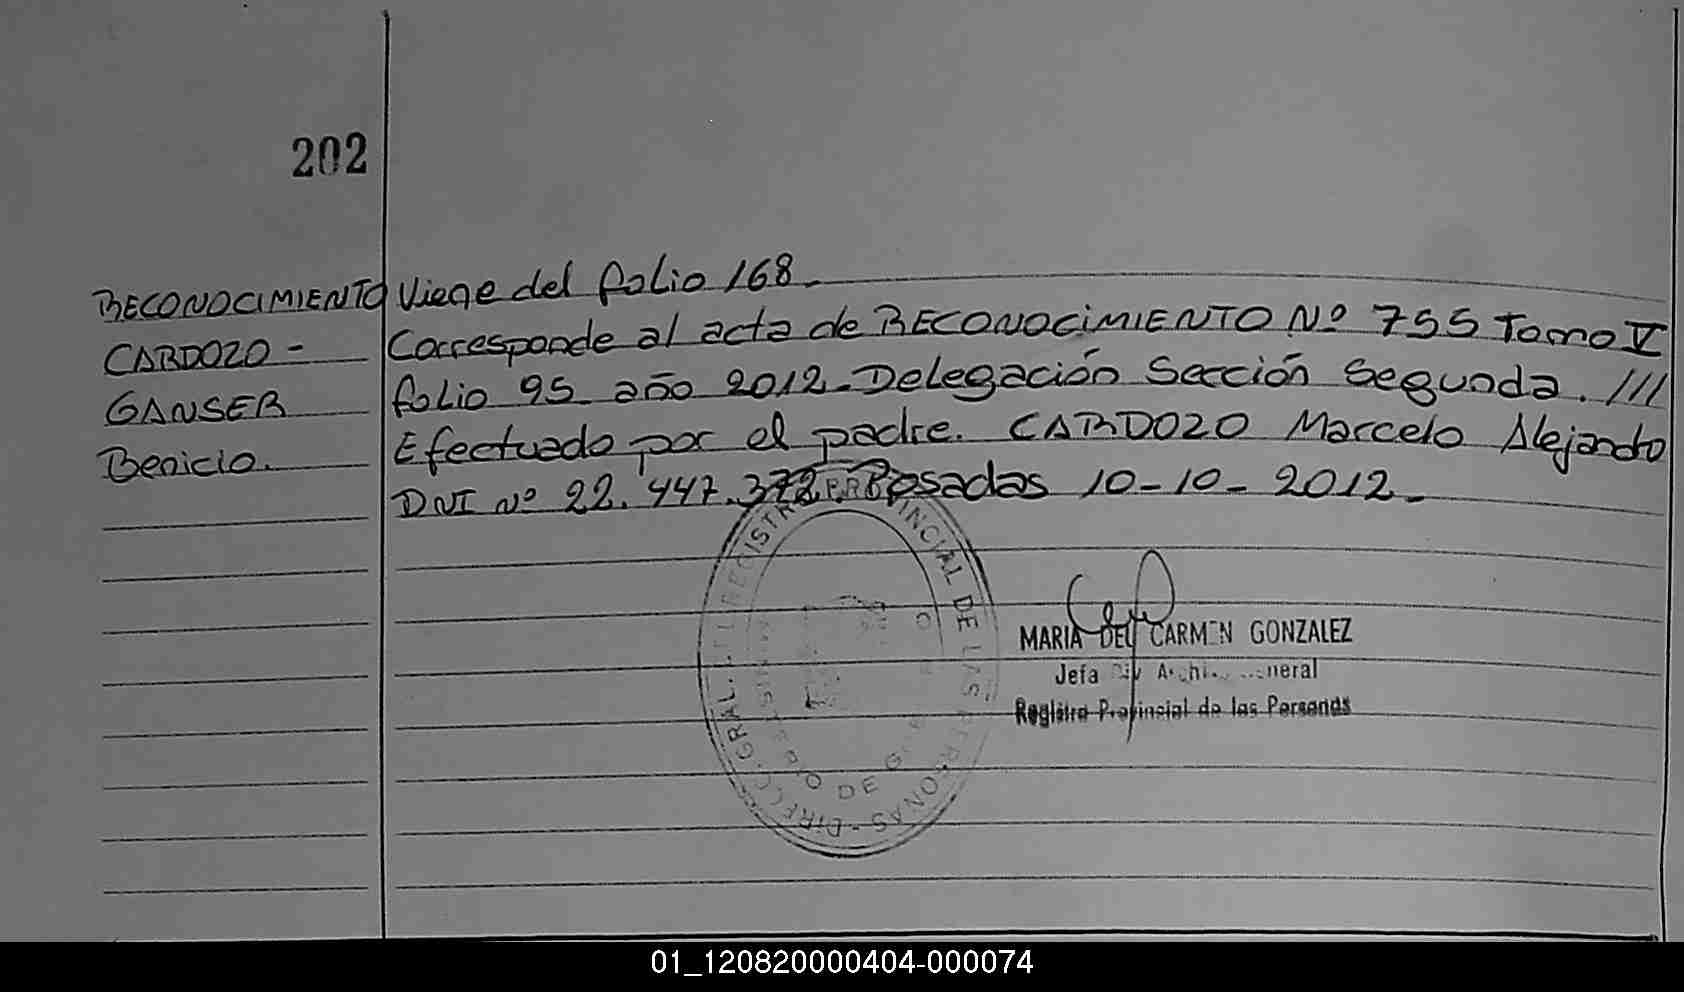 202
RECONOCIMIENTO
CARDOZO -
GANSER
Benicio.
Viene del folio 168.-
Corresponde al acta de RECONOCIMIENTO Nº 755 Tomo V
folio 95 año 2012.- Delegación Sección Segunda. ///
Efectuado por el padre. CARDOZO Marcelo Alejandro
DNI Nº 22.447.372. Posadas 10-10-2012.-
DIRECC. GRAL. DEL REGISTRO PROVINCIAL DE LAS PERSONAS -
MINISTERIO DE
MARIA DEL CARMEN GONZALEZ
Jefa Div Archivo General
Registro Provincial de las Personas
01_120820000404-000074